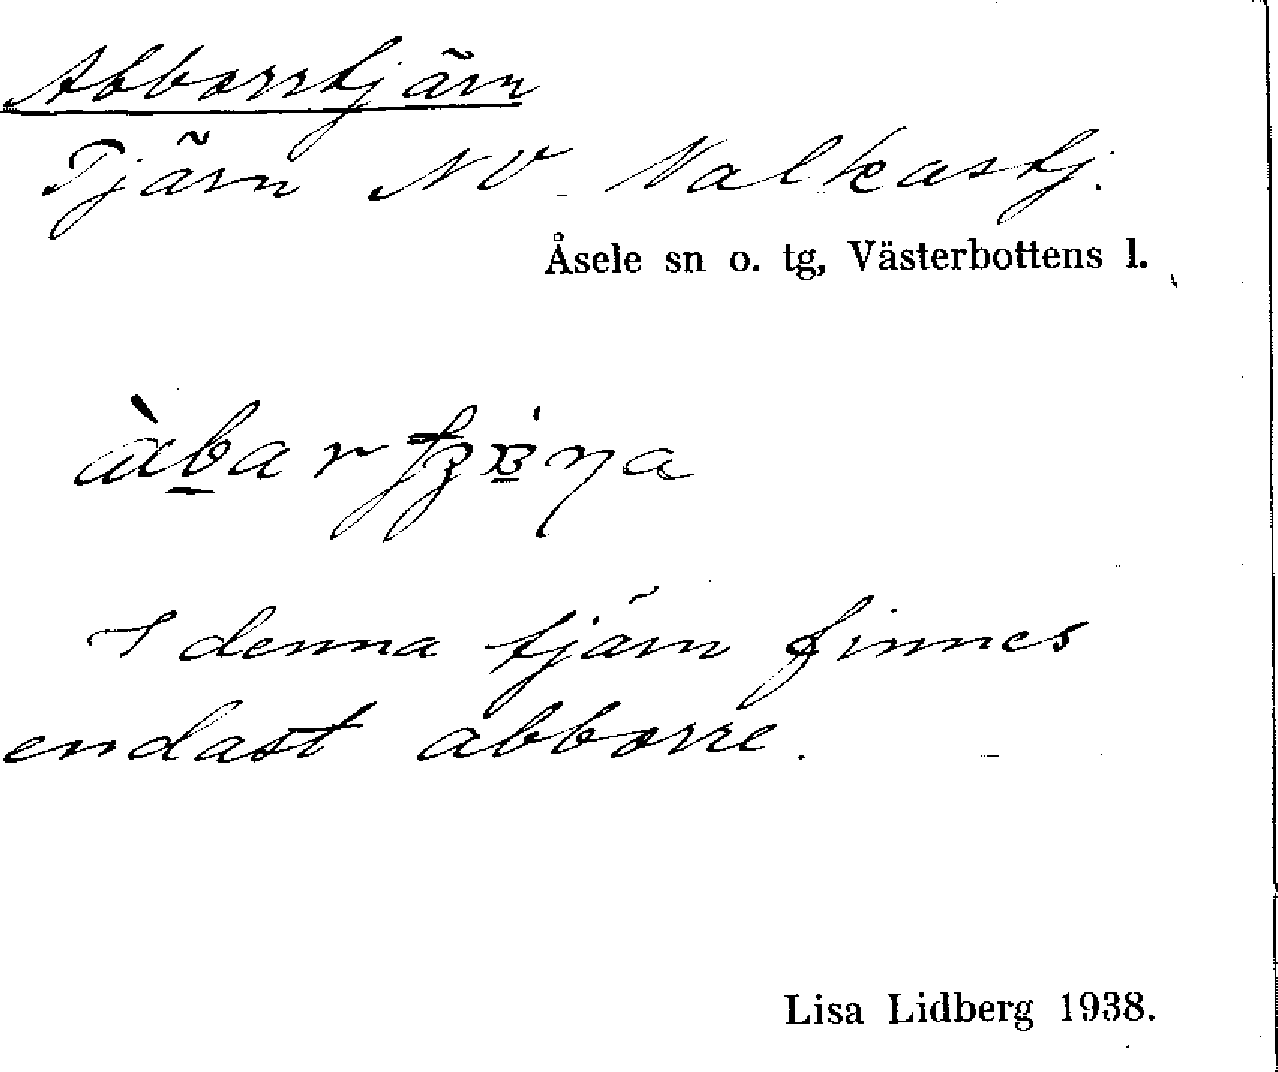 Abborrtjärn
Tjärn NV Valkastj.
Åsele sn o. tg, Västerbottens l.
I denna tjärn finnes
endast abborre.
Lisa Lidberg 1938.